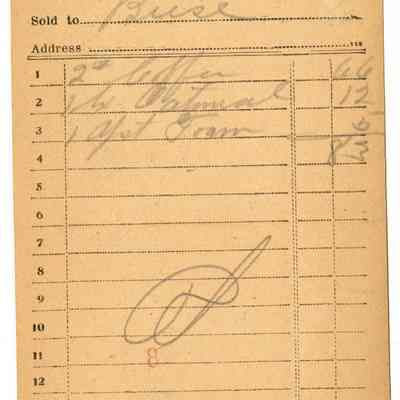 Sold to Buse
Address
1 2# Coffee 66
2 1 lb Oatmeal 12
3 1 Yst Foam
4 8
5
6
7
8
9
10
11 8
12